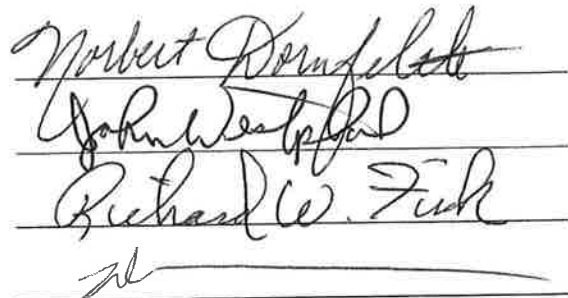 Norbert Dornfeldt
John Westphal
Richard W. Fink